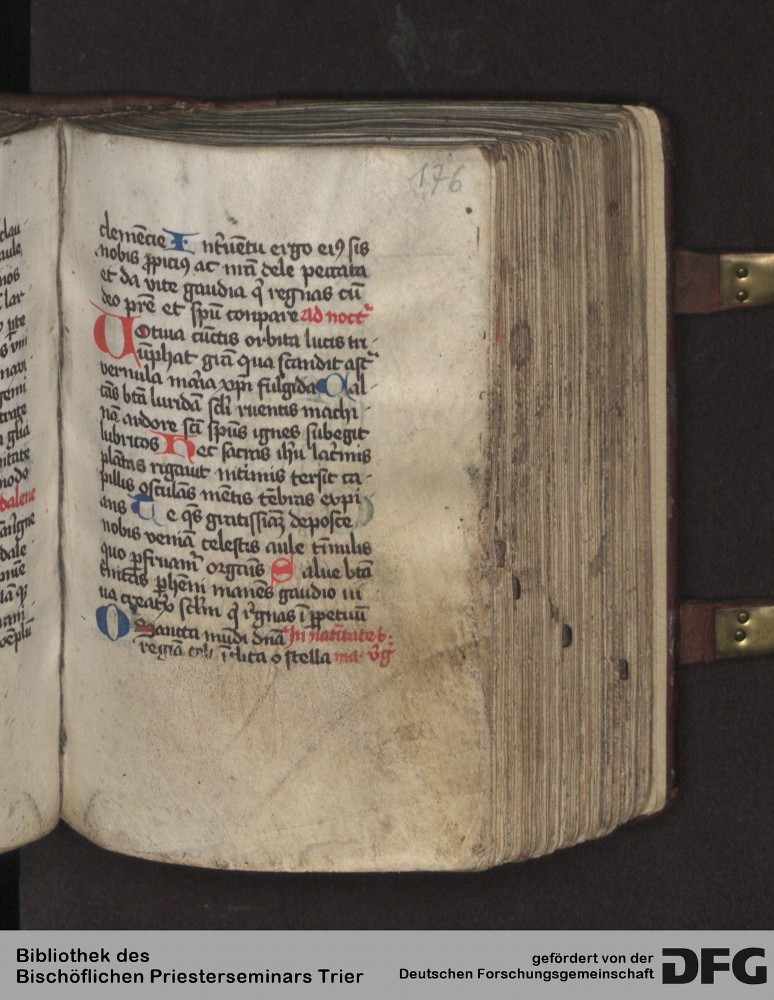 176
clemēcie Intuētu ergo ei9 sis
nobis ꝓpici9 ac nrā dele peccata
et da vite gaudia q̇ regnas cū
deo prē et spū conpare ad noct
Uotiua cūctis orbita lucis tri
ūphat grām qua scandit ast
vernula maria xpī fulgida Cal
cās btā luridā scli ruentis machi
nā ardore scī spūs ignes subegit
lubricos Hec sacris ihū lacrimis
plātas rigauit intimis tersit ca
pillis osculās mētis tēbras expi
ans Te q̄s gratissiaꝫ deposce
nobis veniā celestis aule timulis
quo ꝑfruamr organis Salue btā
perhēni manēs gaudio iu
ua creator sclm q̇ rgnas ī ꝑpetuū
O sancta mūdi dnā In natiuitate b.
regiā celi īclita o stella ma. vg
Bibliothek des
Bischöflichen Priesterseminars Trier
gefördert von der
Deutschen Forschungsgemeinschaft DFG